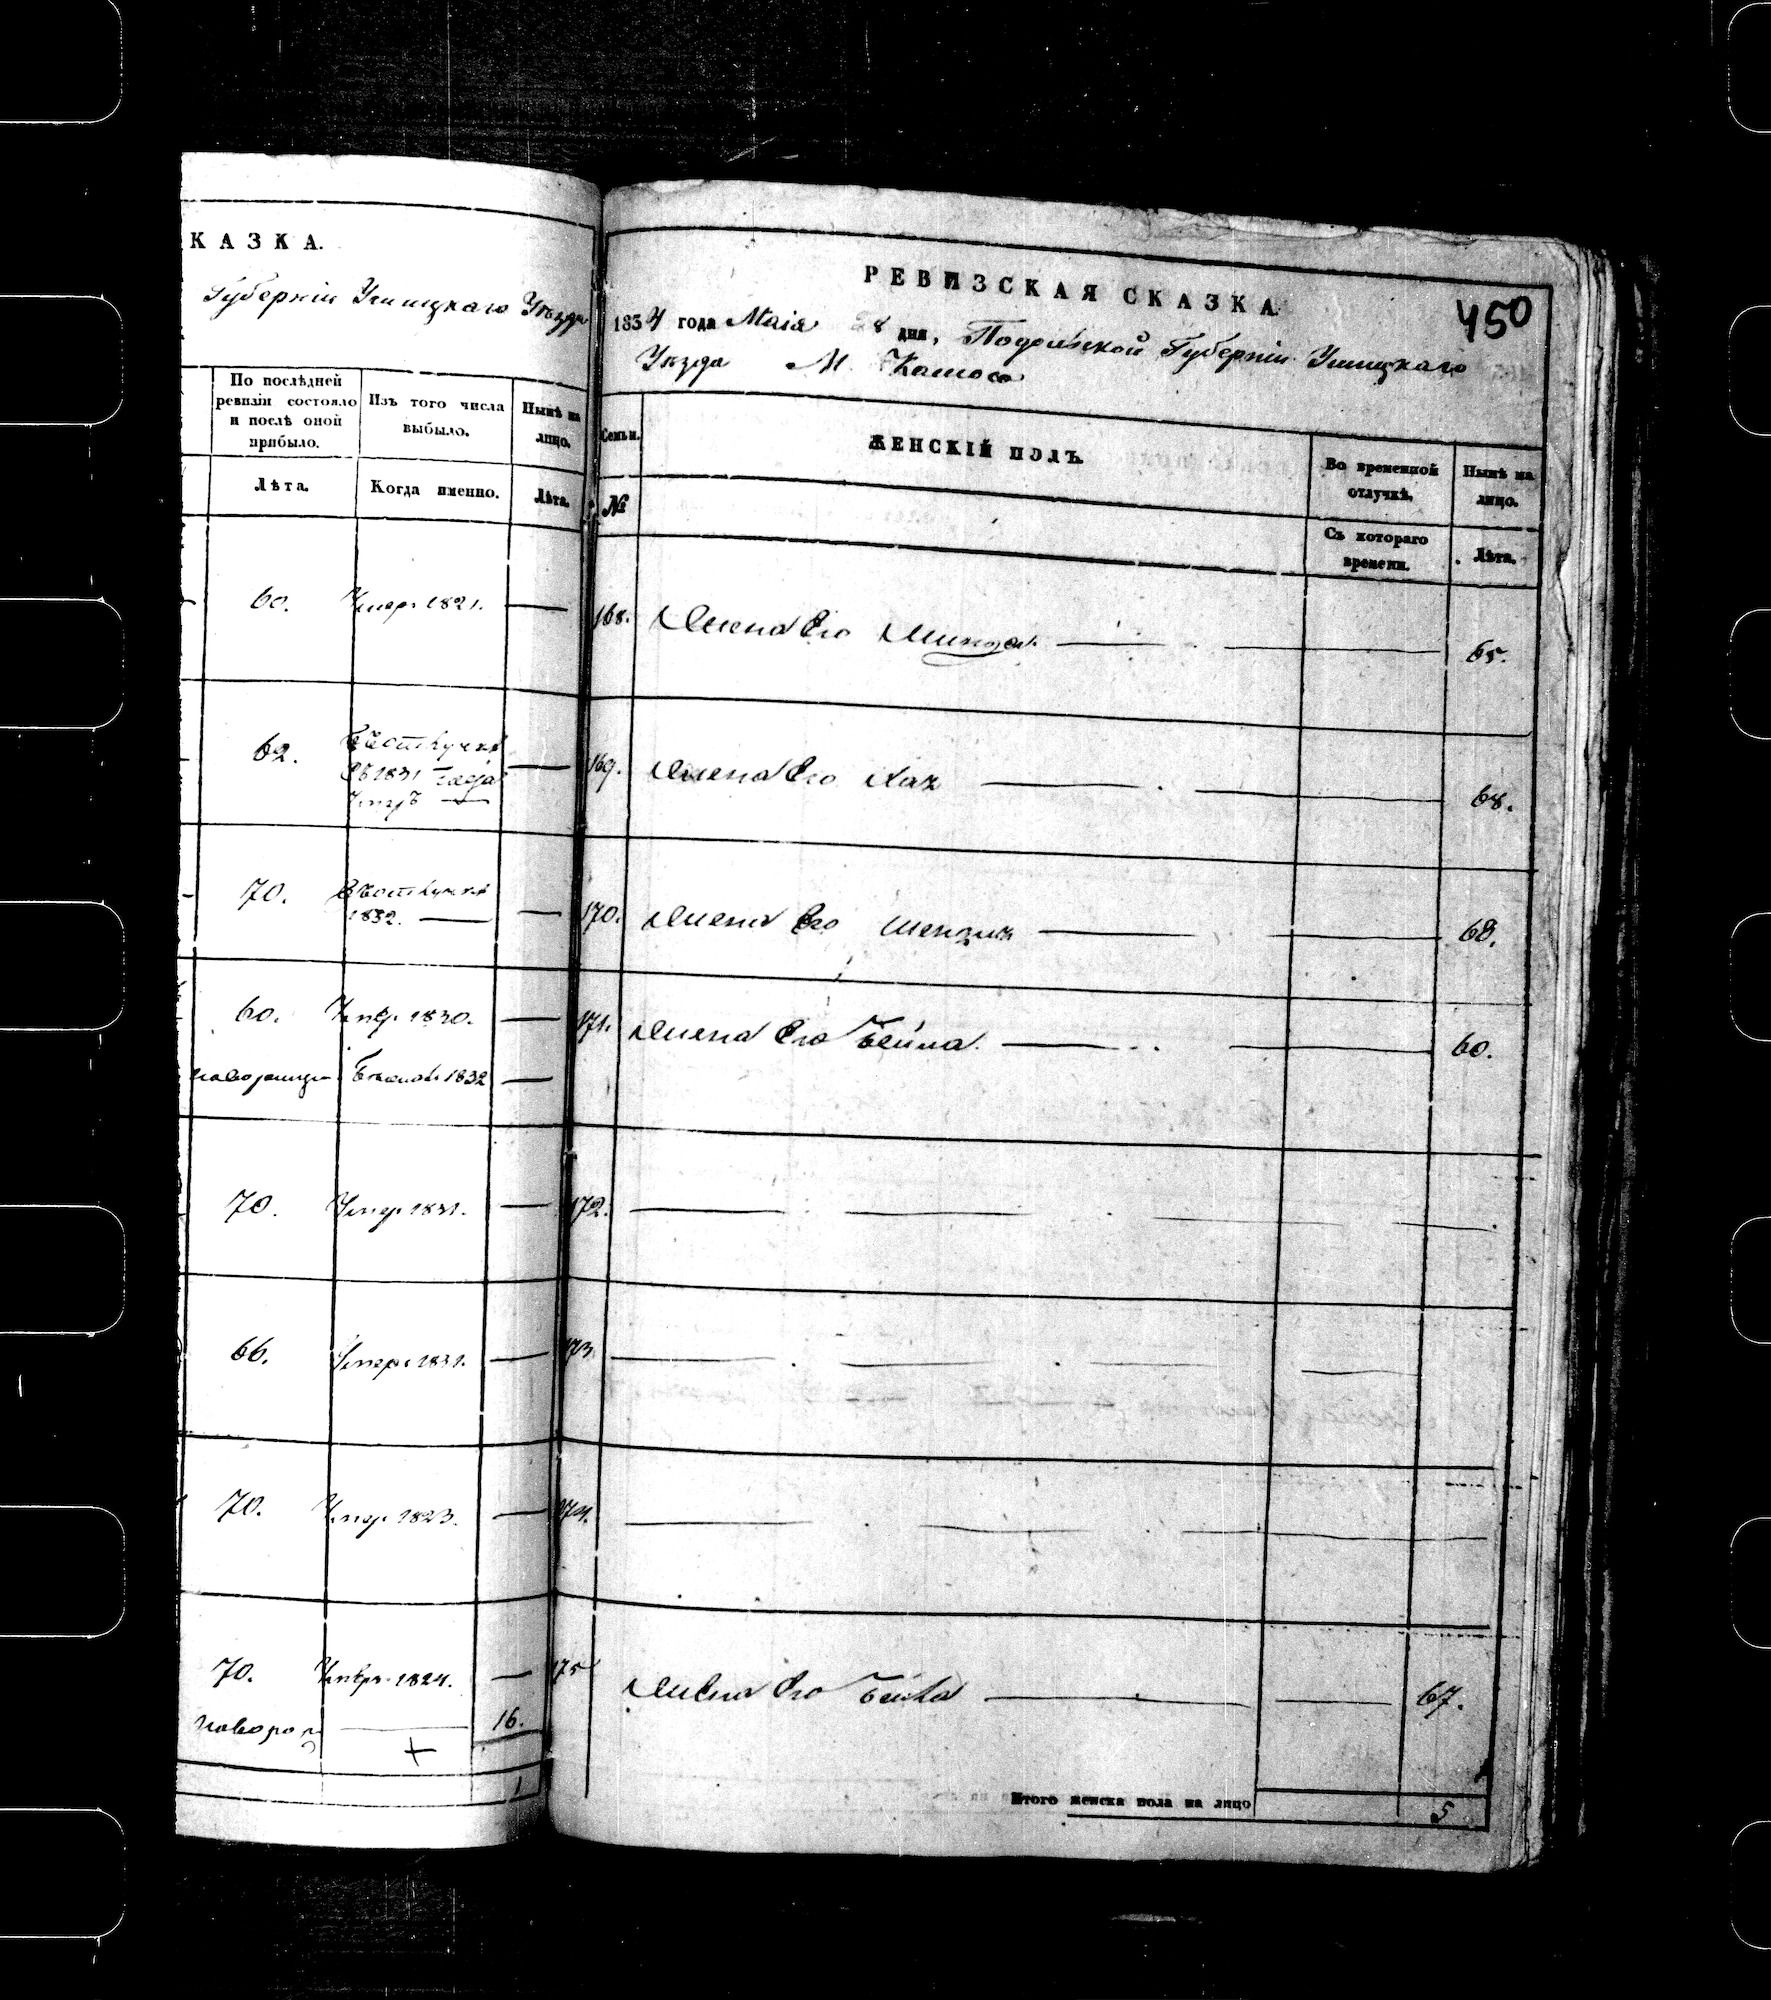 КАЗКА.
Губерніи Ушицкаго Уѣзда
По послѣдней
ревизіи состояло
и послѣ оной
прибыло.
Изъ того числа
выбыло.
Нынѣ на
лицо.
Лѣта.
Когда именно.
Лѣта.
60. Умеръ 1821. —
62.
съ 1831 года —
Умеръ —
70.
1832. — —
60. Умер. 1830. —
1832 —
70. Умер. 1831. —
66. Умеръ 1831. —
70. Умер. 1823. —
70. Умеръ 1824. —
новорож — 16.
+
1
РЕВИЗСКАЯ СКАЗКА
450
1834 года Маія 28 дня, Подольской Губерніи Ушицкаго
Уѣзда М.
Семьи.
ЖЕНСКІЙ ПОЛЪ
Во временной
отлучкѣ.
Нынѣ на
лицо.
№
Съ котораго
времени.
Лѣта.
168. Жена Его — — 65.
169. Жена Его Хая — — 68.
170. Жена Его — — 68.
171. Жена Его Бейла. — — 60.
172. — — — —
173. — — — —
174. — — —
175 Жена Его Бейла — — 67.
Итого женска пола на лицо
5